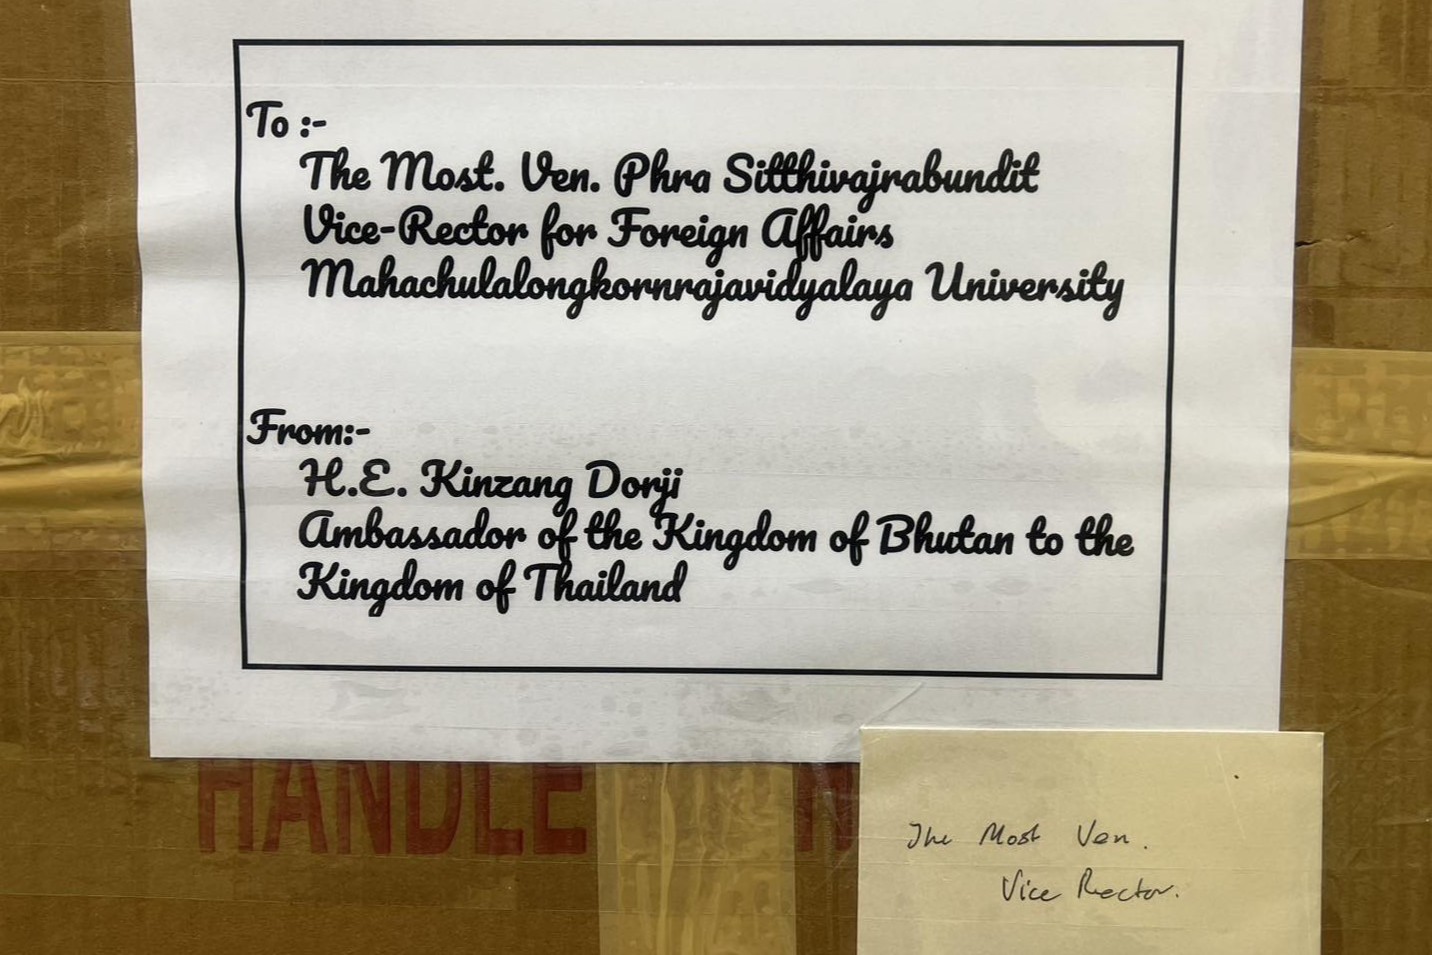 To :-
The Most. Ven. Phra Sitthivajrabundit
Vice-Rector for Foreign Affairs
Mahachulalongkornrajavidyalaya University
From:-
H.E. Kinzang Dorji
Ambassador of the Kingdom of Bhutan to the
Kingdom of Thailand
HANDLE
The Most Ven.
Vice Rector.